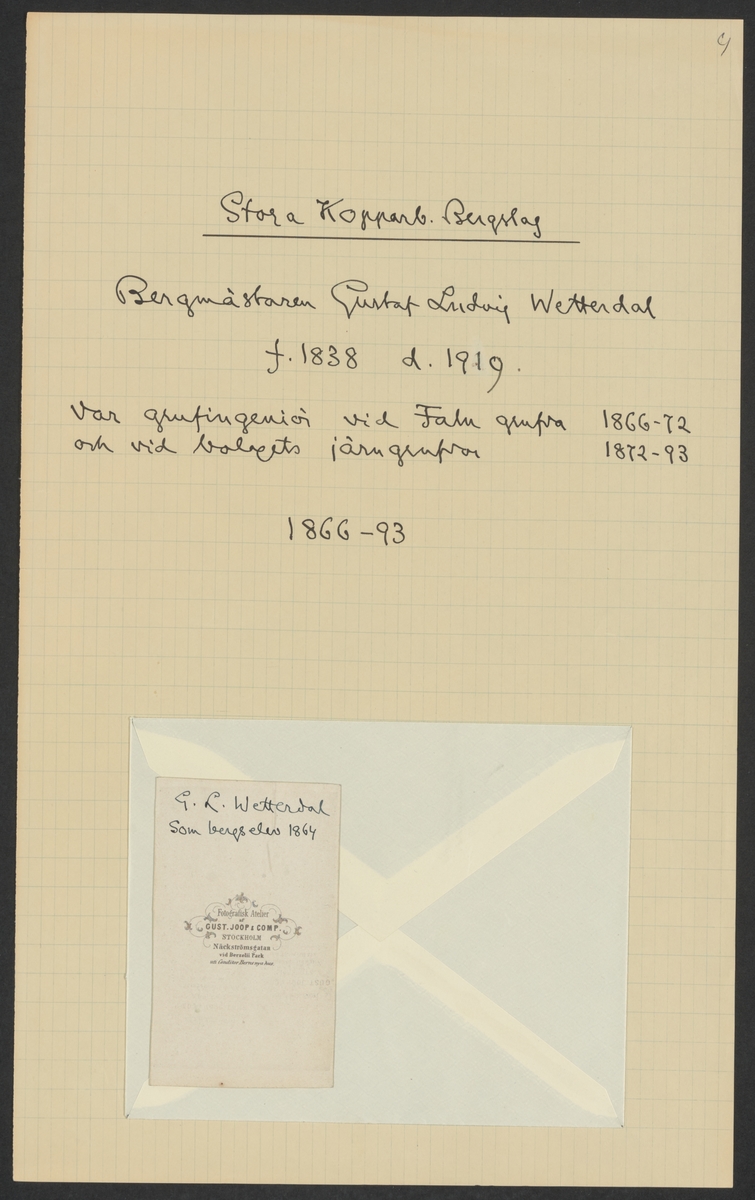 4
Stora Kopparb. Bergslag
Bergmästaren Gustaf Ludvig Wetterdal
f. 1838 d. 1919.
var grufingeniör vid Falu grufva 1866-72
och vid bolagets järngrufvor 1872-93
1866-93
G. L. Wetterdal
Som bergselev 1864
Fotografisk Atelier
af
GUST. JOOP & COMP.
STOCKHOLM
Näckströmsgatan
vid Berzelii Park